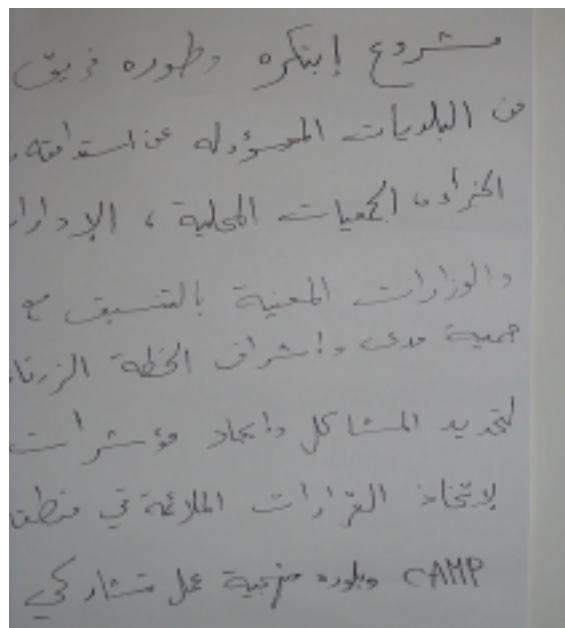 مشروع إبتكره وطوره فريق
من البلديات المسؤوله عن استدامة
الخبراء، الجمعيات المحلية ، الإدارا
والوزارات المعنية بالتنسيق مع
جمعية مدى واشراف الخطة الزرقا
لتحديد المشاكل وايجاد مؤشرات
لاتخاذ القرارات الملائمة في منطق
CAMP وبلوره منهجية عمل تشاركي